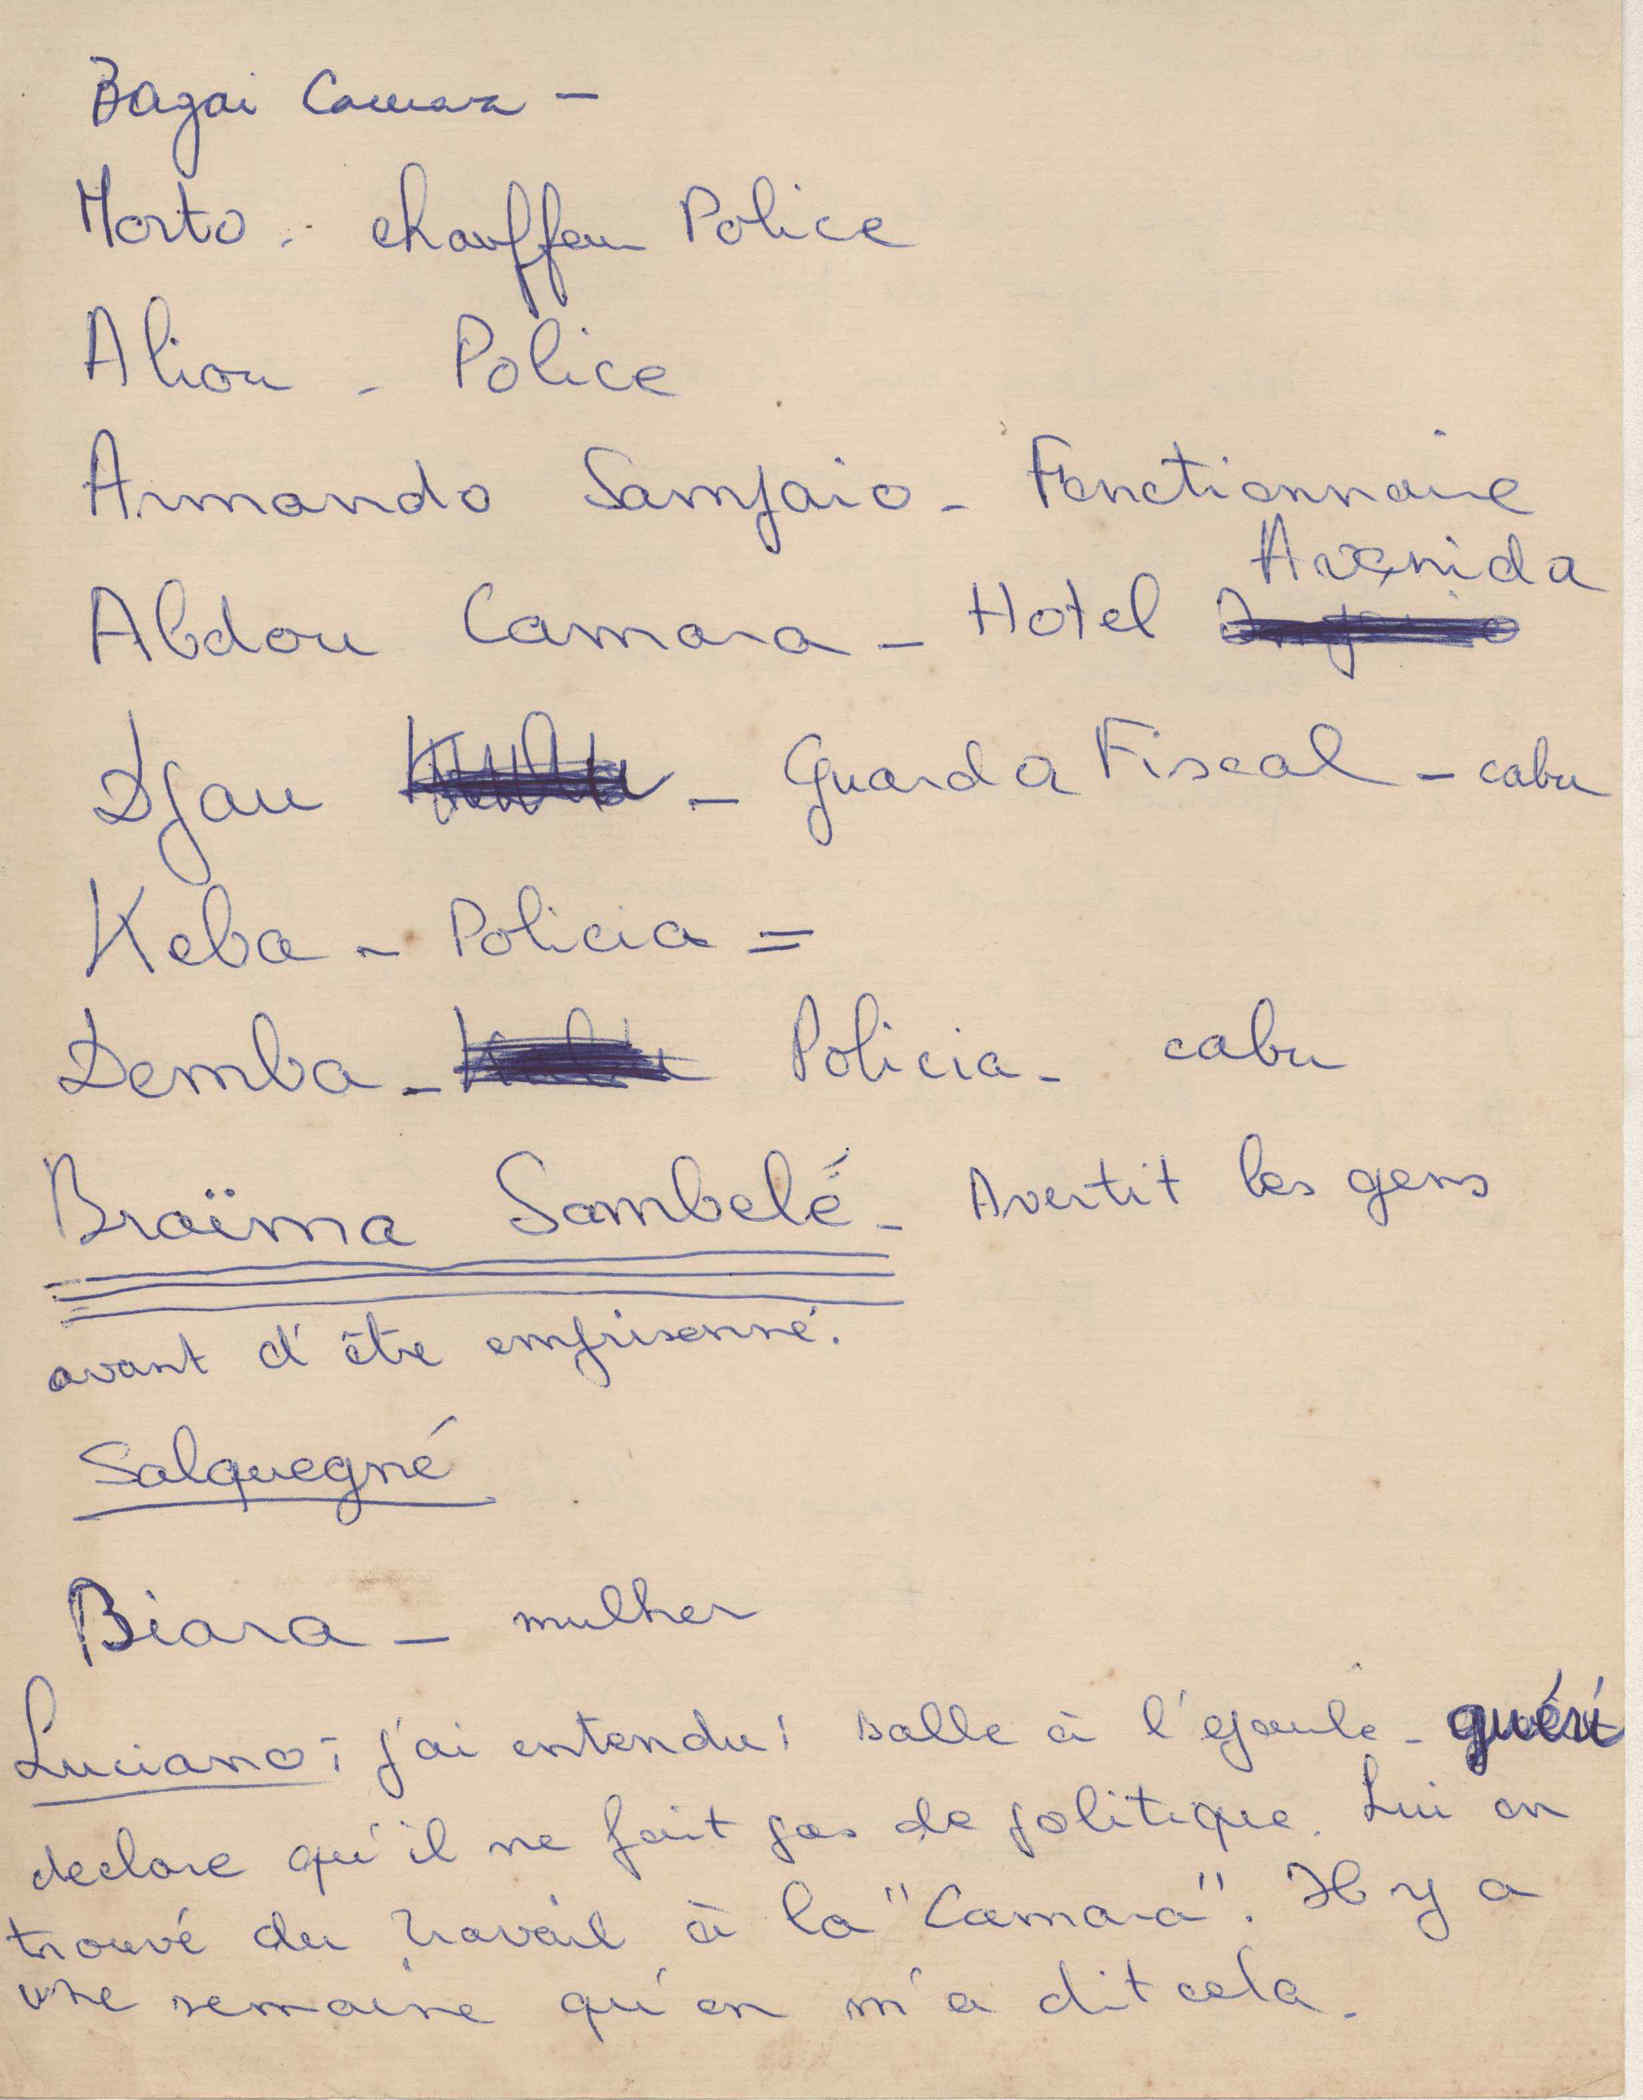 Bagai Camara -
Morto - chauffeur Police
Aliou - Police
Armando Sampaio - Fonctionnaire
Abdou Camara - Hotel Avenida
Djau - Guarda Fiscal - cabu
Keba - Policia =
Demba - Policia - cabu
Braïma Sambelé - Avertit les gens
avant d'être emprisonné.
Salquegné
Biara - mulher
Luciano: j'ai entendu: balle à l'épaule - guéri
declare qu'il ne fait pas de politique. Lui on
trouvé du travail à la "Camara". Il y a
une semaine qu'on m'a dit cela.